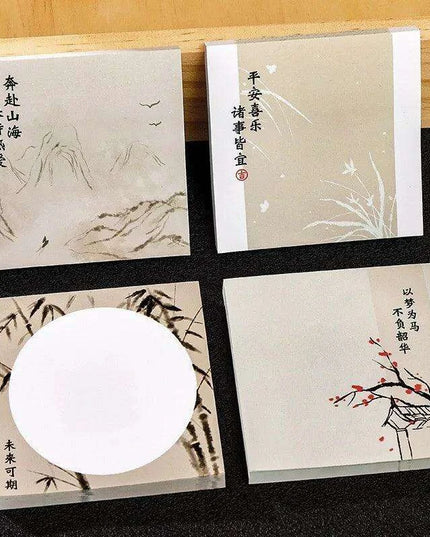 奔赴山海
平安喜乐
诸事皆宜
吉
未来可期
以梦为马
不负韶华